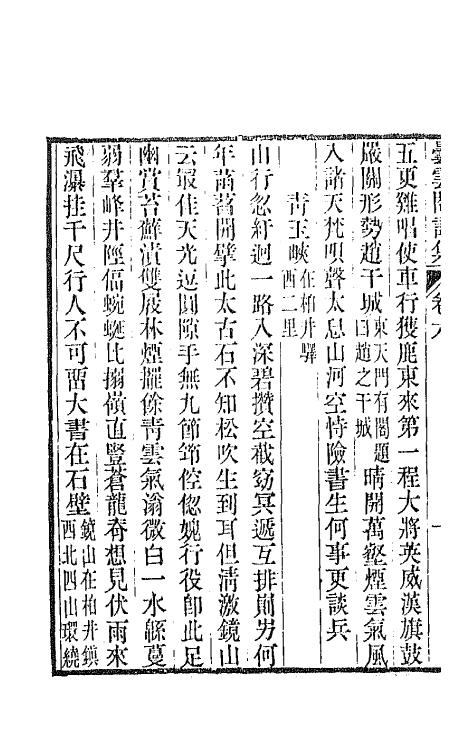 曇雲閣詩集 卷六 一
五更雞唱使車行獲鹿東來第一程大將英威漢旗鼓
嚴關形勢趙干城東天門有閣題曰趙之干城晴開萬壑煙雲氣風
入諸天梵唄聲太息山河空恃險書生何事更談兵
青玉峽在柏井驛西二里
山行忽紆迴一路入深碧攢空截窈冥遞互排崱屴何
年菑翳開擘此太古石不知松吹生到耳但清激鏡山
云最佳天光逗圓隙手無九節筇倥偬媿行役即此足
幽賞苔蘚漬雙屐林煙擢修青雲氣滃微白一水緜蔓
弱羣峰井陘偪蜿蜒比搦嶺直豎蒼龍脊想見伏雨來
飛瀑挂千尺行人不可留大書在石壁鏡山在柏井鎮西北四山環繞